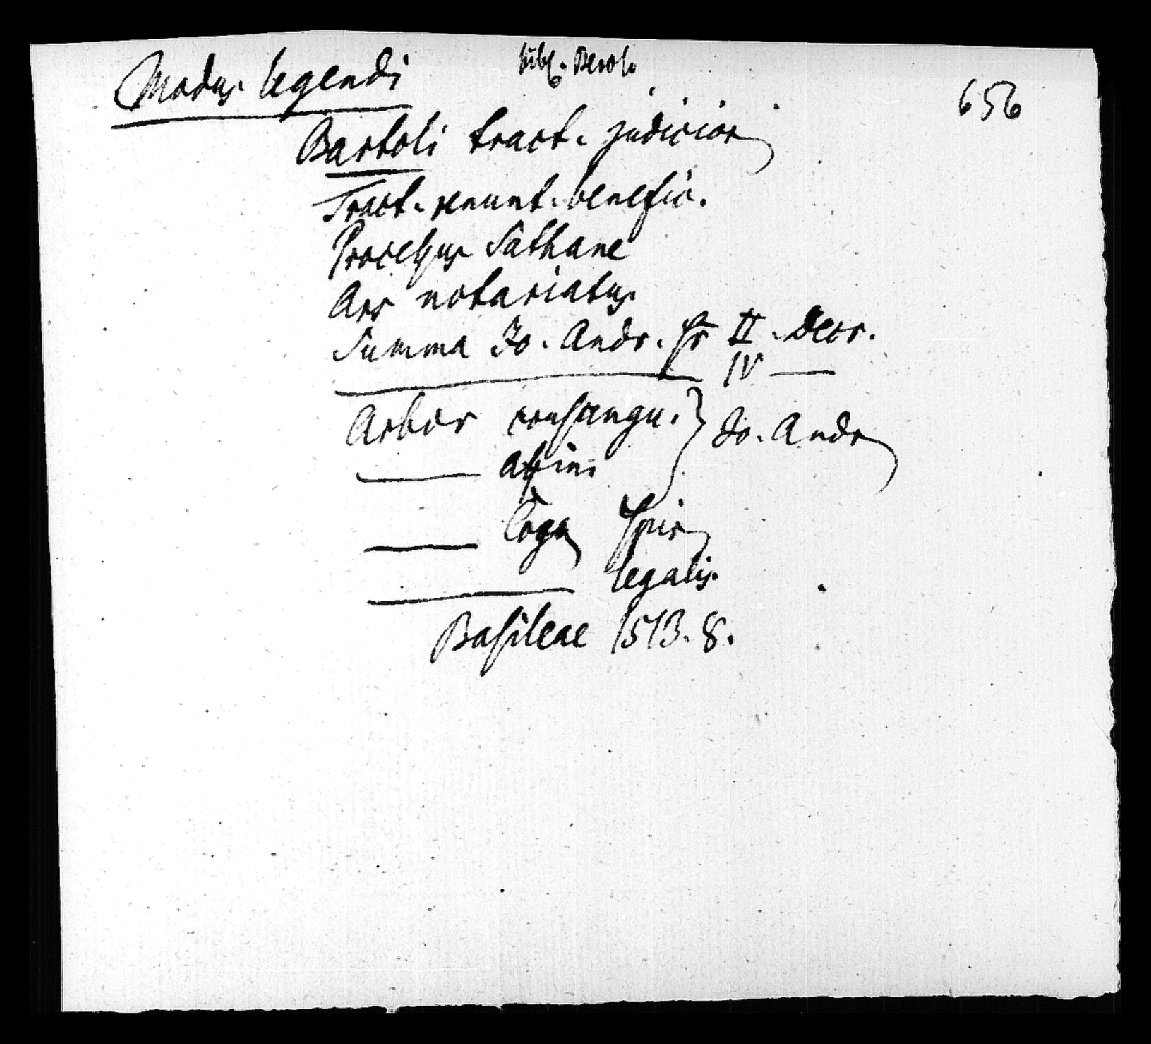 Bibl. Berol.
Modus legendi
656
Bartoli tract. judicior
Tract. renunt. benefic.
Processus Sathane
Ars notariatus
Summa Jo. Andr. sr II. Decr.
IV —
Arbor consangu. } Jo. Andr
— affini
— Cogn spir
— legalis
Basileae 1513. 8.